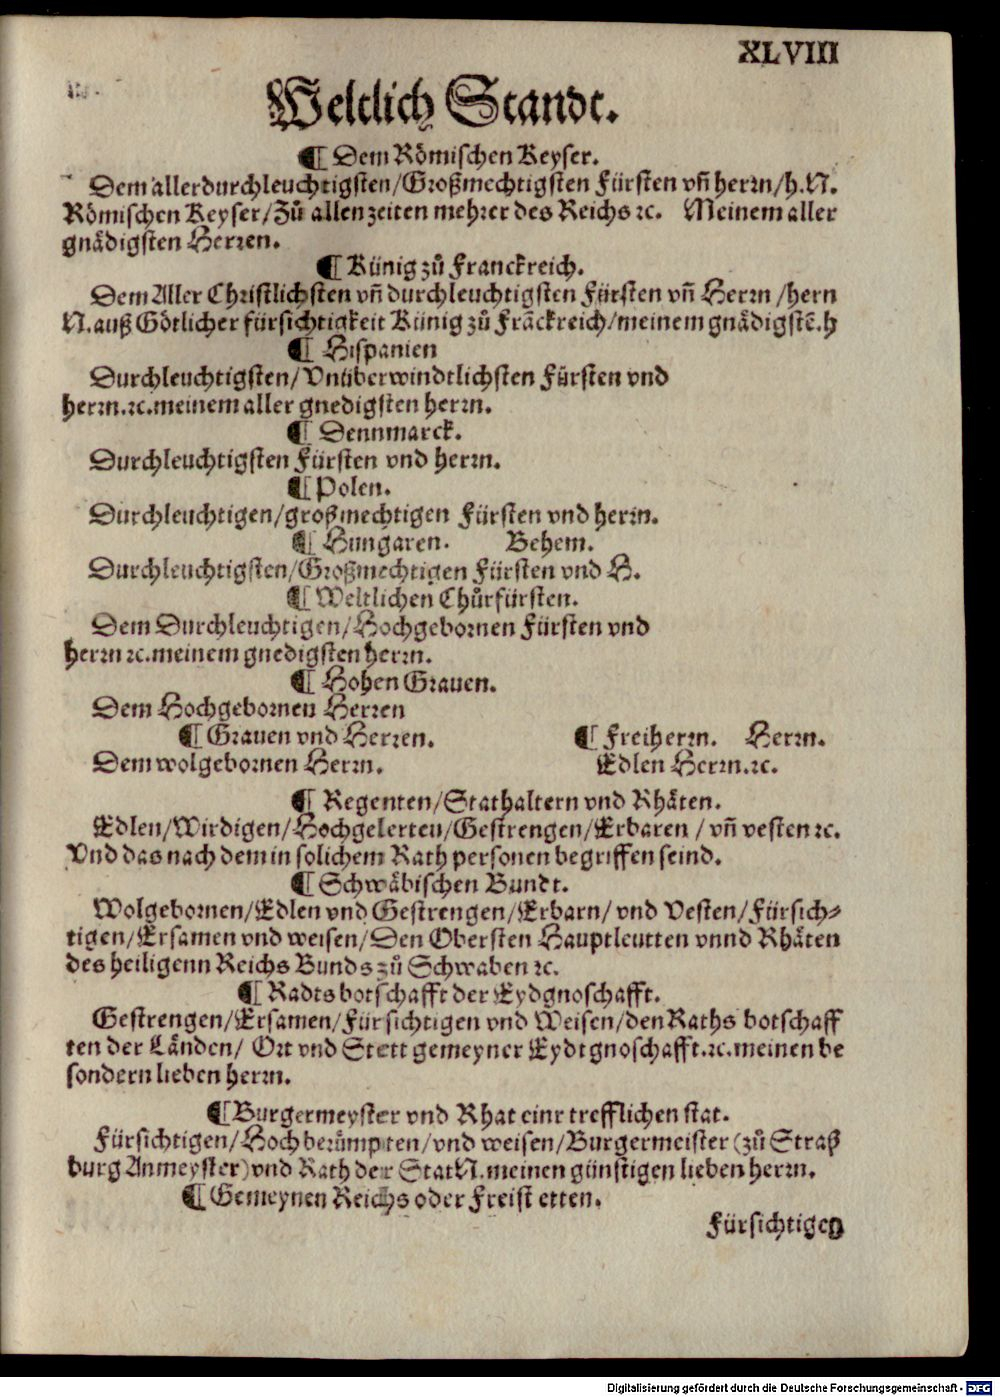 XLVIII
Weltlich Standt.
¶ Dem Römischen Keyser.
Dem allerdurchleuchtigsten/Großmechtigsten Fürsten vñ herrn/h.N.
Römischen Keyser/Zů allen zeiten mehrer des Reichs ⁊c. Meinem aller
gnädigsten Herren.
¶ Künig zů Franckreich.
Dem Aller Christlichsten vñ durchleuchtigsten Fürsten vñ Herrn /hern
N.auß Götlicher fürsichtigkeit Künig zů Frãckreich/meinem gnädigstẽ.h
¶ Hispanien
Durchleuchtigsten/Vnüberwindtlichsten Fürsten vnd
herrn.⁊c.meinem aller gnedigsten herrn.
¶ Dennmarck.
Durchleuchtigsten Fürsten vnd herrn.
¶ Polen.
Durchleuchtigen/großmechtigen Fürsten vnd herrn.
¶ Hungaren. Behem.
Durchleuchtigsten/Großmechtigen Fürsten vnd H.
¶ Weltlichen Chůrfürsten.
Dem Durchleuchtigen/Hochgebornen Fürsten vnd
herrn ⁊c.meinem gnedigsten herrn.
¶ Hohen Grauen.
Dem Hochgebornen Herren
¶ Grauen vnd Herren. ¶ Freiherrn. Herrn.
Dem wolgebornen Herrn. Edlen Herrn.⁊c.
¶ Regenten/Stathaltern vnd Rhäten.
Edlen/Wirdigen/Hochgelerten/Gestrengen/Erbaren / vñ vesten ⁊c.
Vnd das nach dem in solichem Rath personen begriffen seind.
¶ Schwäbischen Bundt.
Wolgebornen/Edlen vnd Gestrengen/Erbarn/ vnd Vesten/Fürsich⸗
tigen/Ersamen vnd weisen/Den Obersten Hauptleutten vnnd Rhäten
des heiligenn Reichs Bunds zů Schwaben ⁊c.
¶ Radts botschafft der Eydgnoschafft.
Gestrengen/Ersamen/Fürsichtigen vnd Weisen/den Raths botschaff
ten der Länden/ Ort vnd Stett gemeyner Eydtgnoschafft.⁊c.meinen be
sondern lieben herrn.
¶ Burgermeyster vnd Rhat einr trefflichen stat.
Fürsichtigen/Hoch berümpten/vnd weisen/Burgermeister (zů Straß
burg Anmeyster) vnd Rath der Stat N.meinen günstigen lieben herrn.
¶ Gemeynen Reichs oder Freist etten.
Fürsichtigen
Digitalisierung gefördert durch die Deutsche Forschungsgemeinschaft - DFG